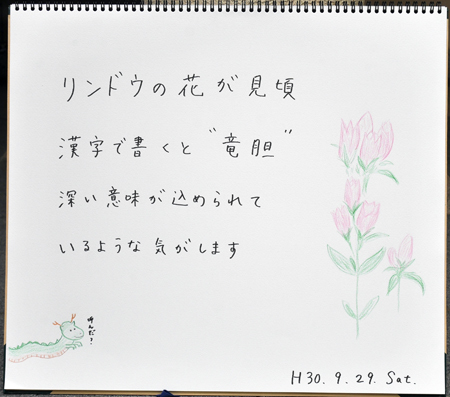 リンドウの花が見頃
漢字で書くと"竜胆"
深い意味が込められて
いるような気がします
呼んだ?
H30.9.29.Sat.